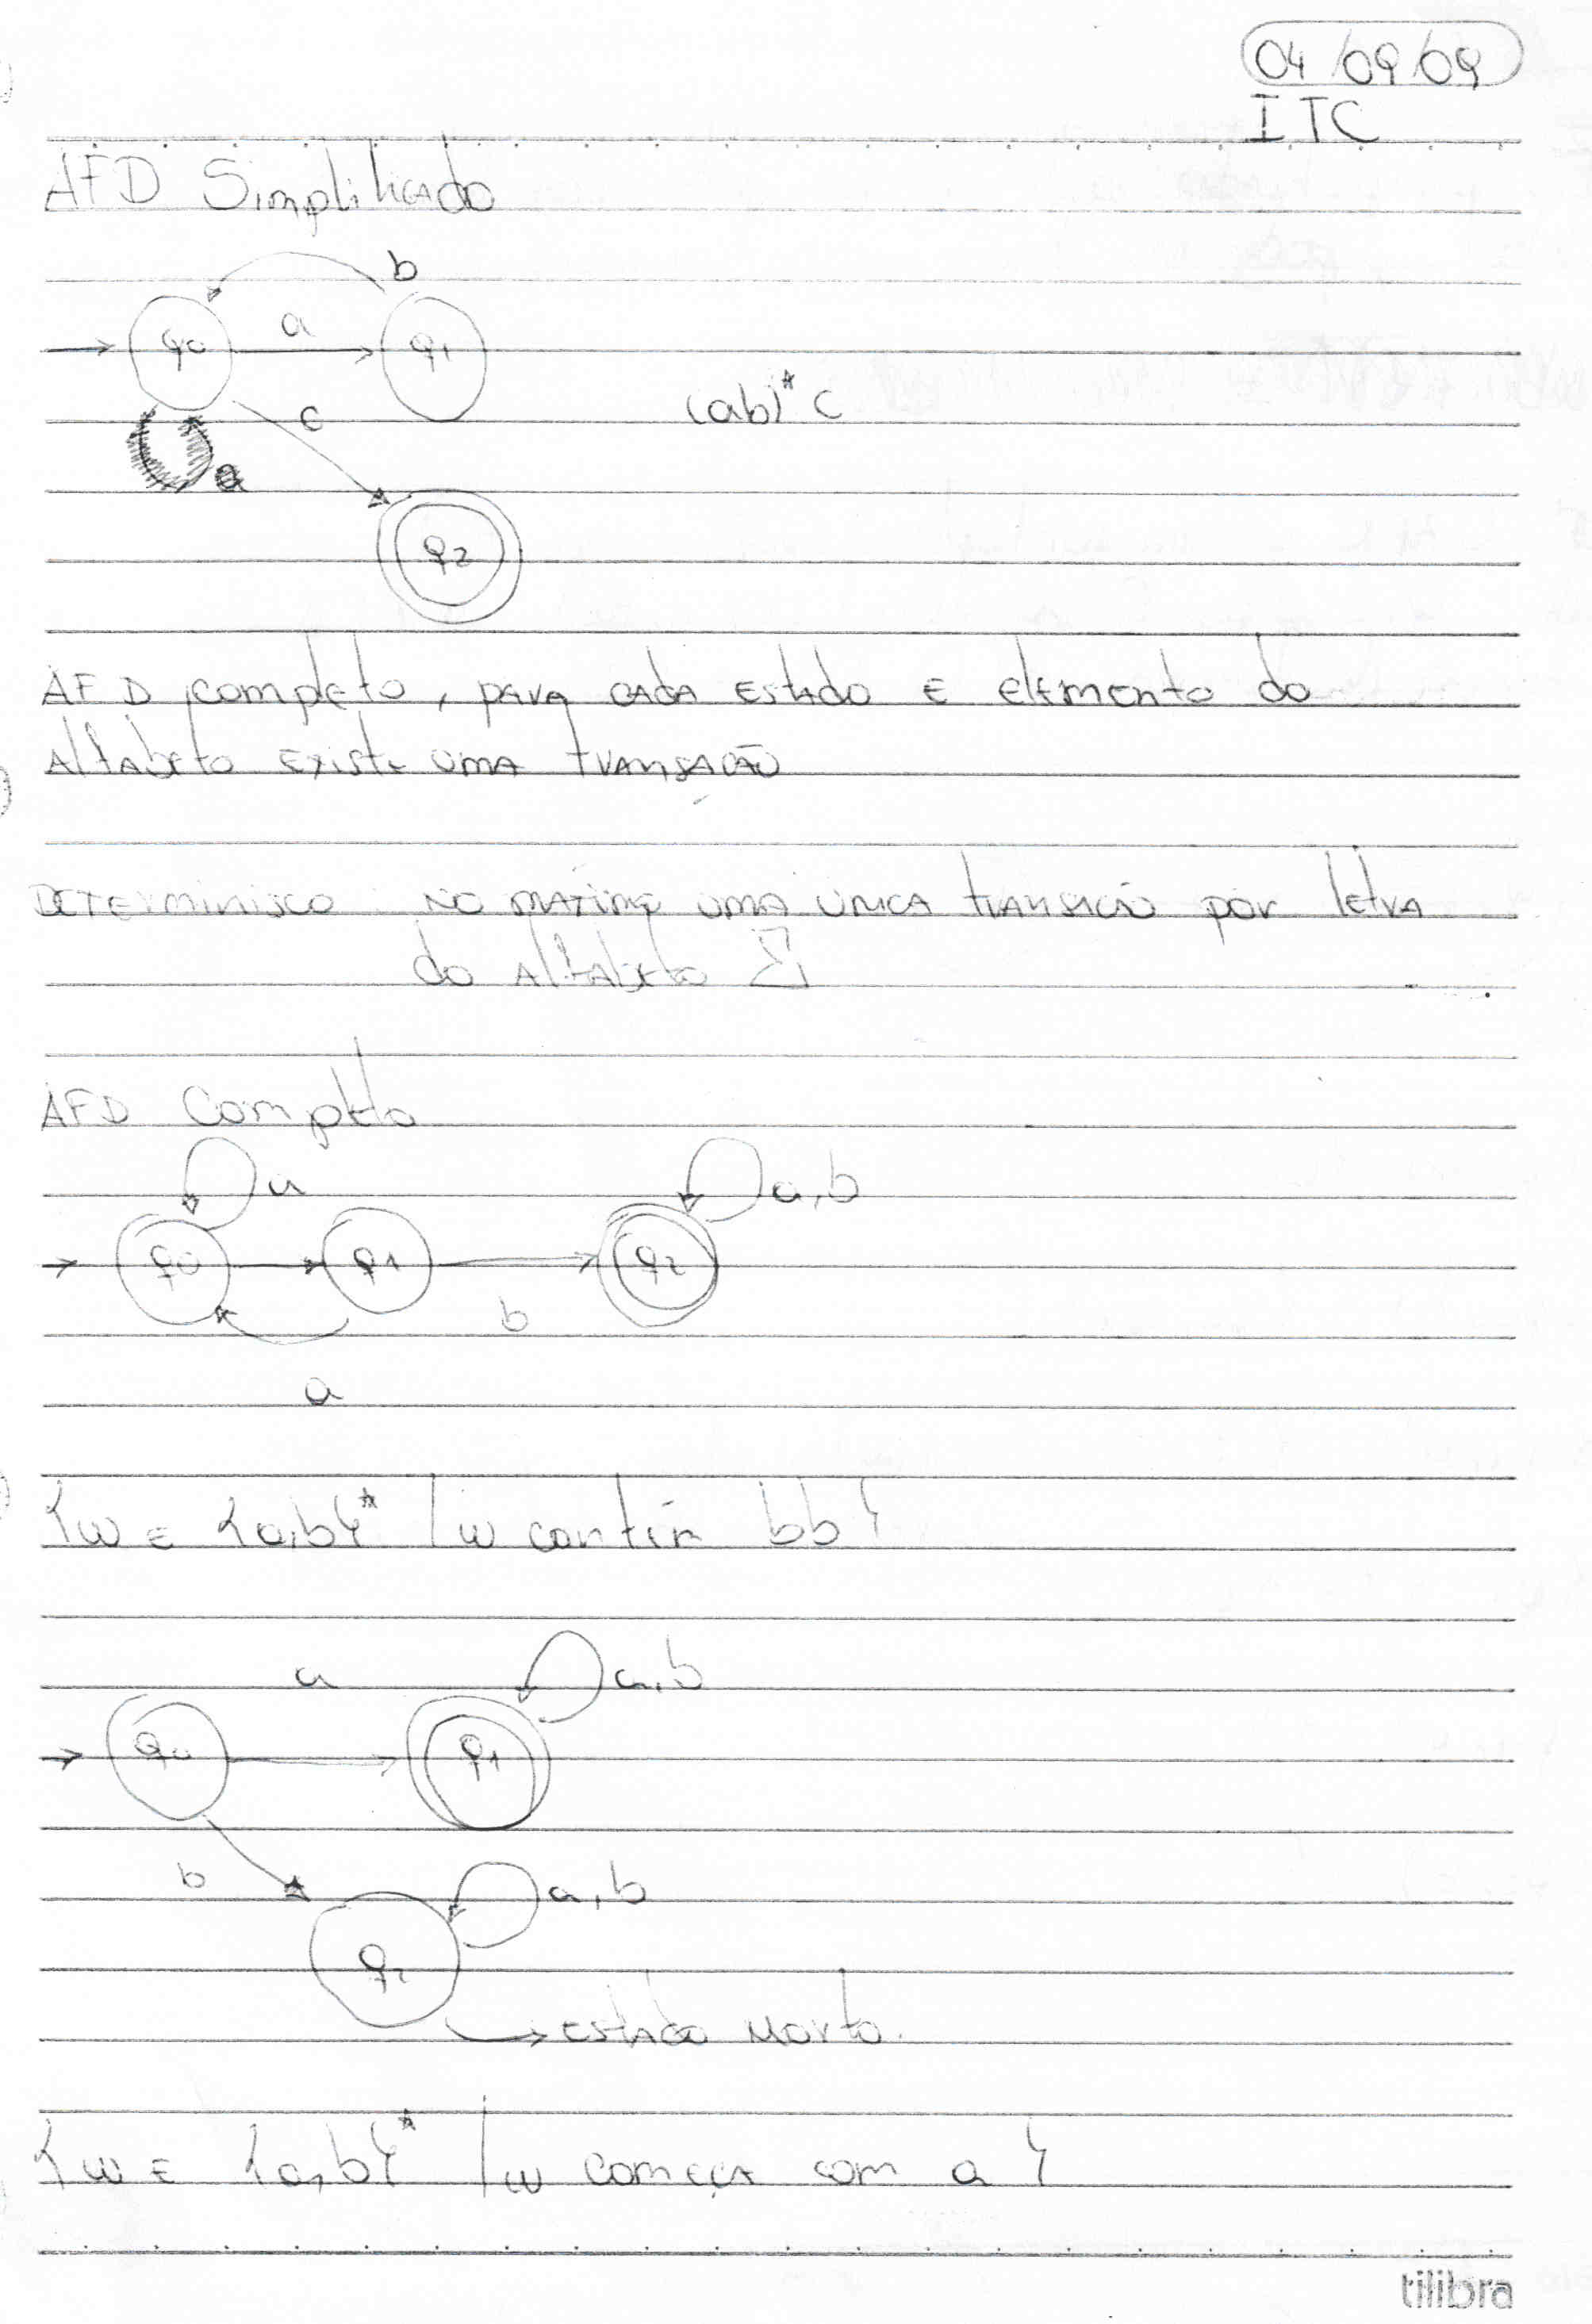 04/09/09
ITC
AFD Simplificado
b
a
q0 q1
(ab)* c
c
a
q2
AFD completo, para cada estado e elemento do
alfabeto existe uma transação
DETERMINISCO no maximo uma unica transação por letra
do alfabeto Σ
AFD Completo
a a,b
q0 q1 q2
b
a
{w ∈ {a,b}* / w contém bb}
a a,b
q0 q1
b a,b
q2
→ estado morto.
{w ∈ {a,b}* / w começa com a}
tilibra